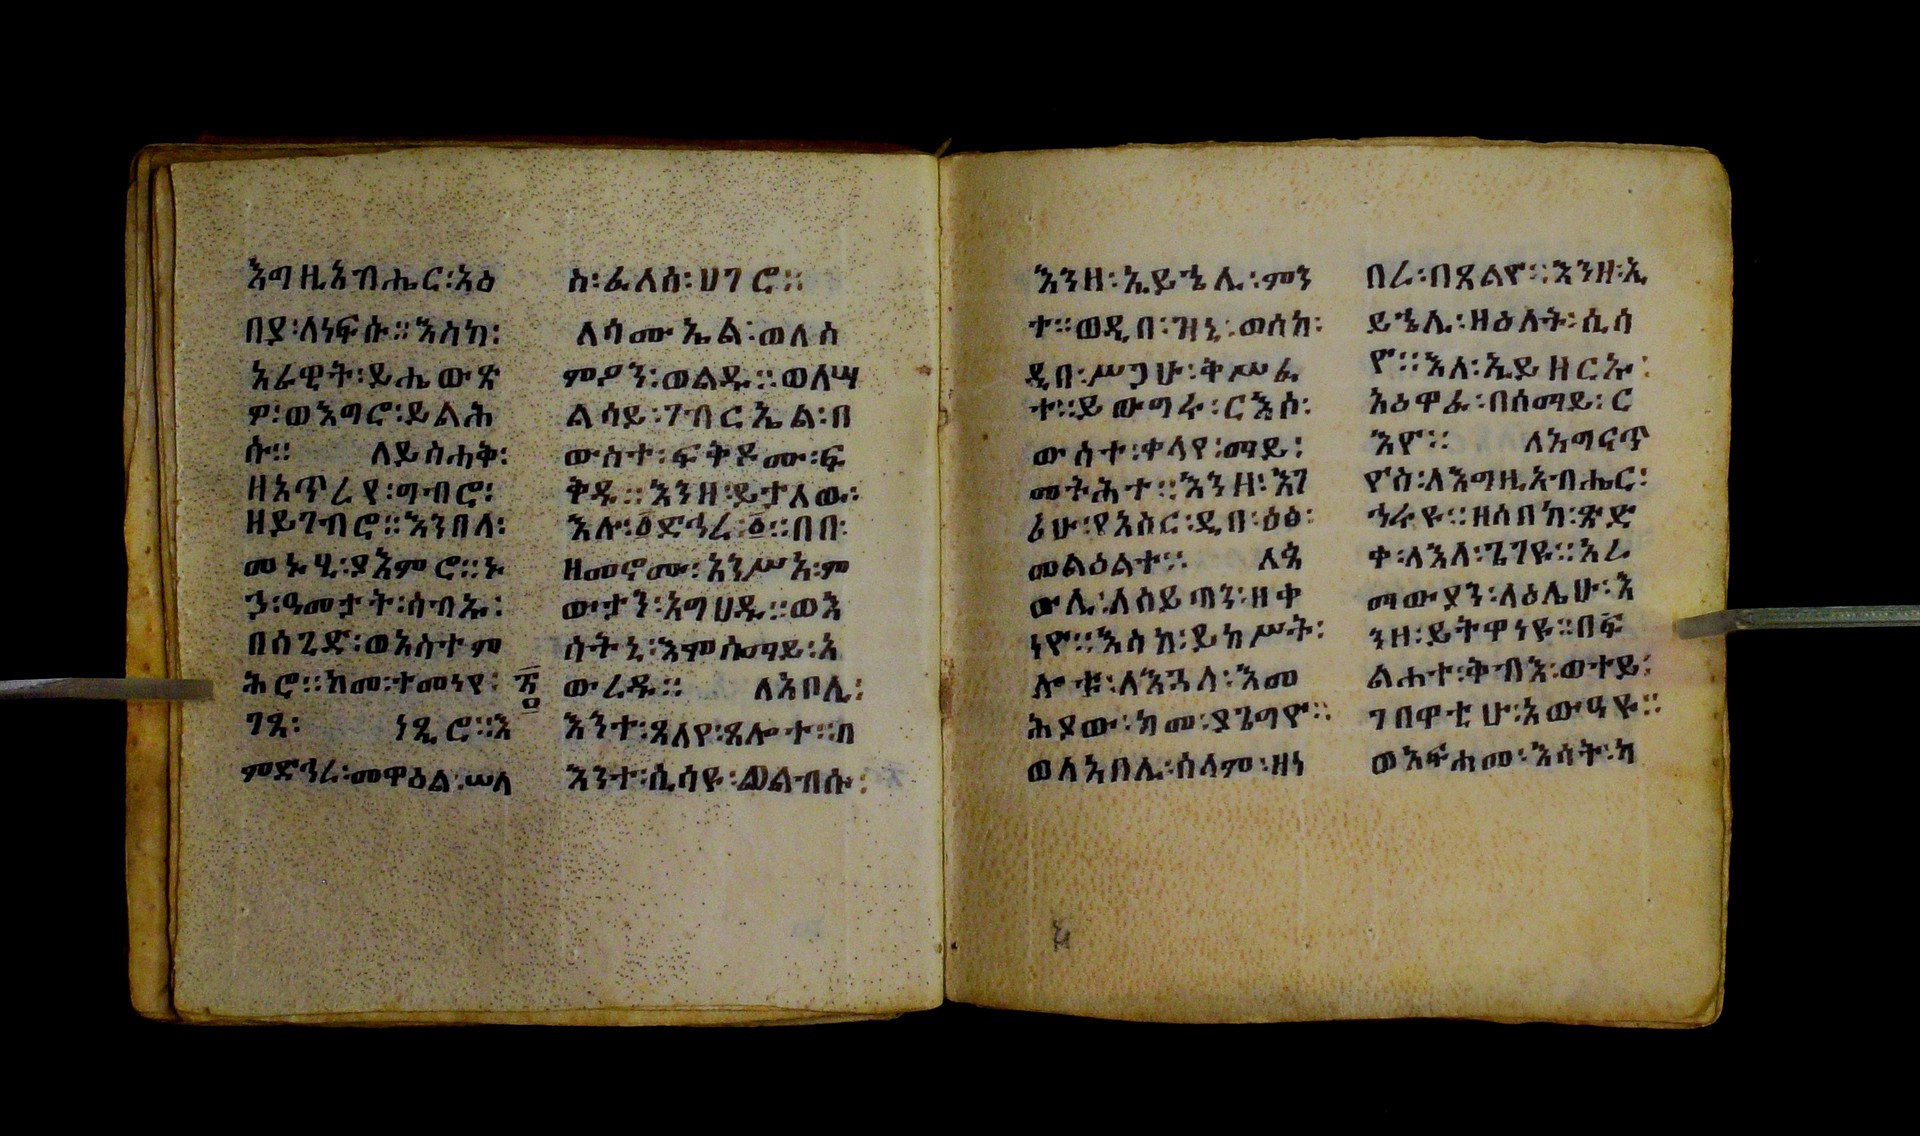 እግዚአብሔር፡አዕ
በያ፡ለነፍሱ።እስከ፡
አራዊት፡ይሔውጽ
ዎ፡ወእግሮ፡ይልሕ
ሱ። ለይስሐቅ፡
ዘአጥረየ፡ግብሮ፡
ዘይገብሮ።እንበለ፡
መኑሂ፡ያእምሮ።ኑ
ኃ፡ዓመታት፡ሰብኡ፡
በሰጊድ፡ወአስተም
ሕሮ።ከመ፡ተመነየ፡
ገጺ፡ ነጺሮ።እ
ምድኅረ፡መዋዕል፡ሠለ
ስ፡ፈለሰ፡ሀገሮ።
ለሳሙኤል፡ወለስ
ምዖን፡ወልዱ።ወለሣ
ልሳይ፡ገብርኤል፡በ
ውስተ፡ፍቅዶሙ፡ፍ
ቅዱ።እንዘ፡ይታለው፡
እሉ፡፩ድኅረ፡፩።በበ፡
ዘመኖሙ፡አንሥአ፡ም
ውታን፡አግሀዱ።ወእ
ሳትኒ፡እምሰማይ፡አ
ውረዱ። ለአቦሊ፡
እንተ፡ጸለየ፡ጸሎተ።በ
እንተ፡ሲሳዩ፡ወልብሱ፡
እንዘ፡ኢይኄሊ፡ምን
ተ።ወዲበ፡ዝኒ፡ወሰከ፡
ዲበ፡ሥጋሁ፡ቅሥፈ
ተ።ይውግሩ፡ርእሰ፡
ውስተ፡ቀላየ፡ማይ፡
መትሕተ።እንዘ፡እገ
ሪሁ፡የአስር፡ዲበ፡ዕፅ፡
መልዕልተ። ለዔ
ውሊ፡ለሰይጣን፡ዘቀ
ነዮ።እስከ፡ይከሥት፡
ሎቱ፡ለእጓለ፡እመ
ሕያው፡ከመ፡ያጌግዮ።
ወለአበሊ፡ሰላም፡ዘነ
በረ፡በጸልዮ።እንዘ፡ኢ
ይኄሊ፡ዘዕለት፡ሲሳ
ዮ።እለ፡ኢይዘርኡ፡
አዕዋፈ፡በሰማይ፡ር
እዮ። ለአግናጥ
ዮስ፡ለእግዚአብሔር፡
ኅሩዩ።ዘሰበከ፡ጽድ
ቀ፡ለእለ፡ጌገዩ።አረ
ማውያን፡ለዕሌሁ፡እ
ንዘ፡ይትዋነዩ።በፍ
ልሐተ፡ቅብእ፡ወተይ፡
ገበዋቲሁ፡አውዓዩ።
ወአፍሐመ፡እሳት፡ካ